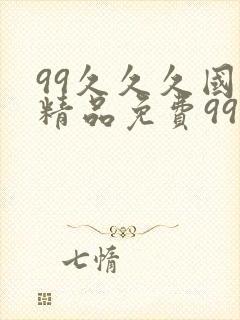 99久久久國
精品免費99
七情